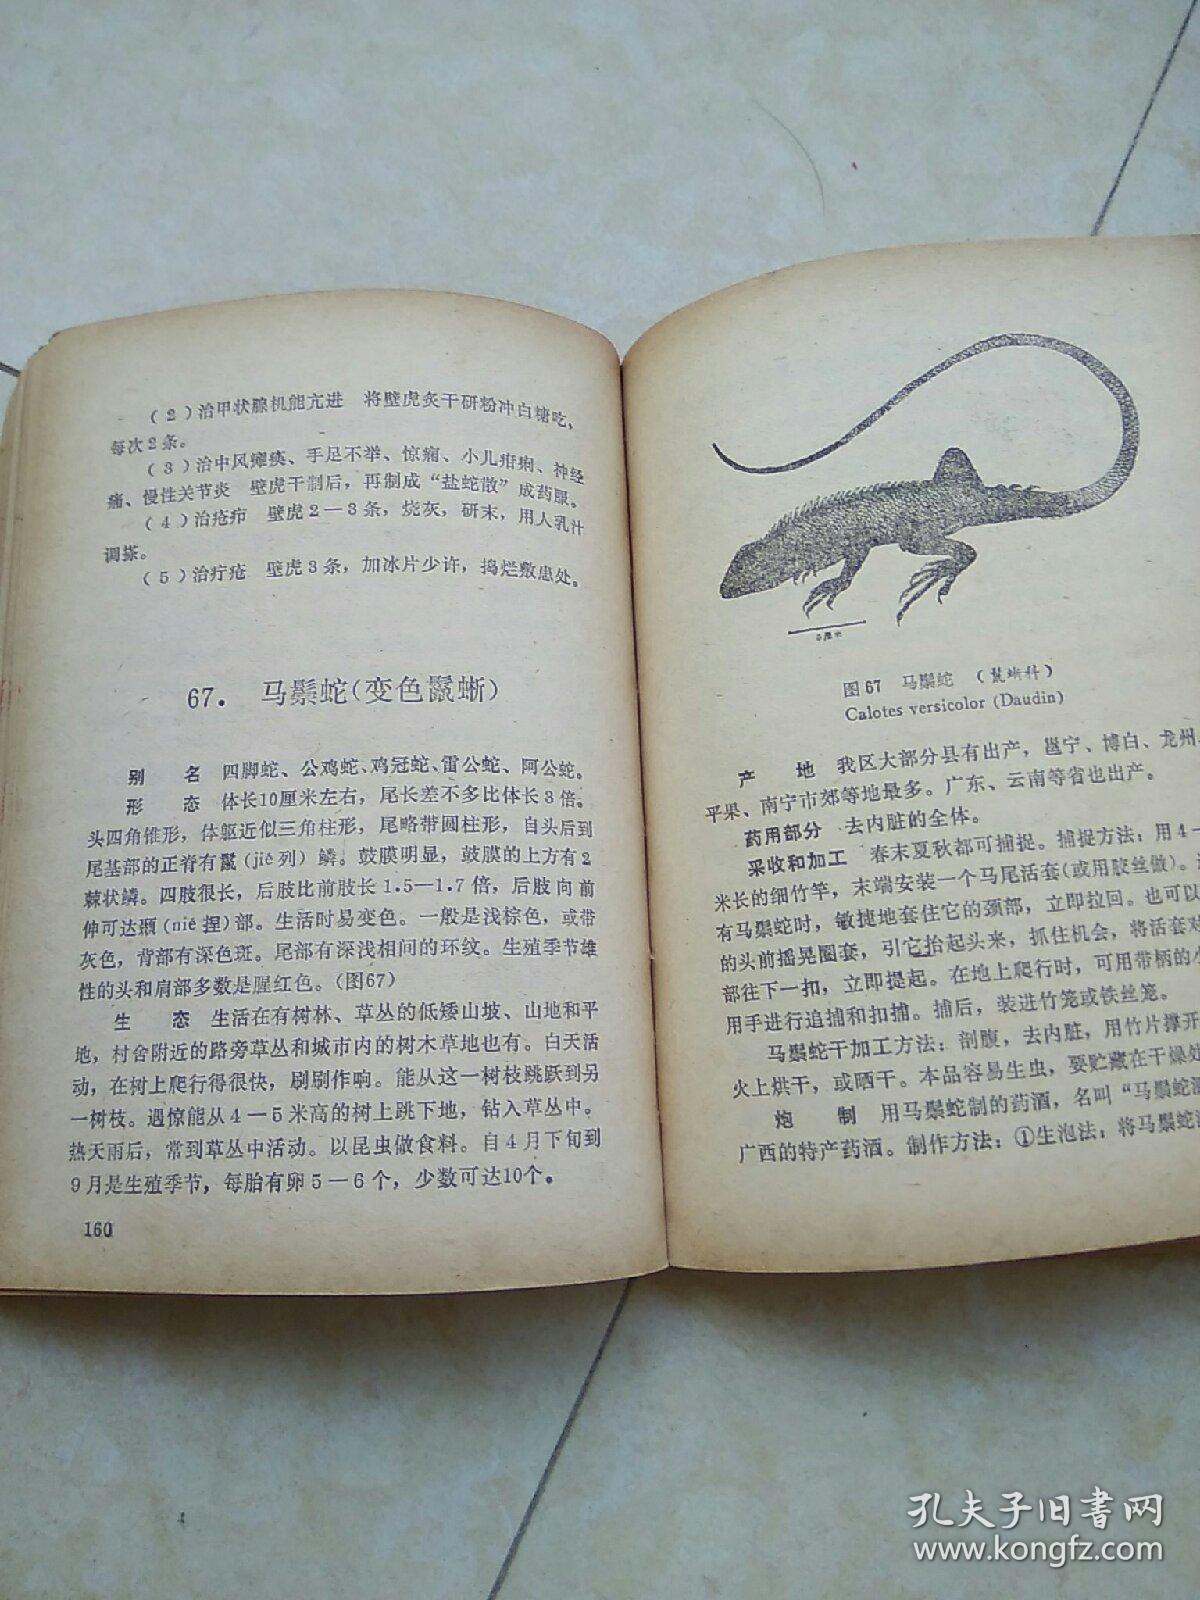 (2)治甲状腺机能亢进　将壁虎炙干研粉冲白糖吃，
每次2条。
(3)治中风瘫痪、手足不举、惊痫、小儿疳痢、神经
痛、慢性关节炎　壁虎干制后，再制成“盐蛇散”成药服。
(4)治疮疖　壁虎2—3条，烧灰，研末，用人乳汁
调搽。
(5)治疔疮　壁虎3条，加冰片少许，捣烂敷患处。
67．　马鬃蛇(变色鬣蜥)
别　名　四脚蛇、公鸡蛇、鸡冠蛇、雷公蛇、阿公蛇。
形　态　体长10厘米左右，尾长差不多比体长3倍。
头四角锥形，体躯近似三角柱形，尾略带圆柱形，自头后到
尾基部的正脊有鬣(jiē列)鳞。鼓膜明显，鼓膜的上方有2
棘状鳞。四肢很长，后肢比前肢长1.5—1.7倍，后肢向前
伸可达颞(niè捏)部。生活时易变色。一般是浅棕色，或带
灰色，背部有深色斑。尾部有深浅相间的环纹。生殖季节雄
性的头和肩部多数是腥红色。(图67)
生　态　生活在有树林、草丛的低矮山坡、山地和平
地，村舍附近的路旁草丛和城市内的树木草地也有。白天活
动，在树上爬行得很快，刷刷作响。能从这一树枝跳跃到另
一树枝。遇惊能从4—5米高的树上跳下地，钻入草丛中。
热天雨后，常到草丛中活动。以昆虫做食料。自4月下旬到
9月是生殖季节，每胎有卵5—6个，少数可达10个。
160
厘米
图67　马鬃蛇　(鬣蜥科)
Calotes versicolor (Daudin)
产　地　我区大部分县有出产，邕宁、博白、龙州、
平果、南宁市郊等地最多。广东、云南等省也出产。
药用部分　去内脏的全体。
采收和加工　春末夏秋都可捕捉。捕捉方法：用4—
米长的细竹竿，末端安装一个马尾活套(或用胶丝做)。
有马鬃蛇时，敏捷地套住它的颈部，立即拉回。也可以
的头前摇晃圈套，引它抬起头来，抓住机会，将活套对
部往下一扣，立即提起。在地上爬行时，可用带柄的小
用手进行追捕和扣捕。捕后，装进竹笼或铁丝笼。
马鬃蛇干加工方法：剖腹，去内脏，用竹片撑开
火上烘干，或晒干。本品容易生虫，要贮藏在干燥处
炮　制　用马鬃蛇制的药酒，名叫“马鬃蛇酒
广西的特产药酒。制作方法：①生泡法：将马鬃蛇
孔夫子旧书网
www.kongfz.com